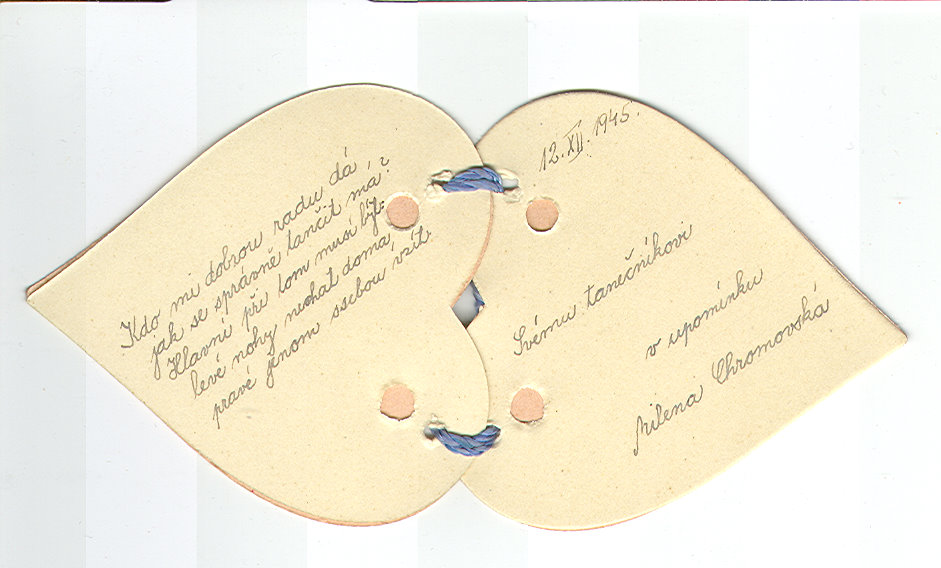 Kdo mi dobrou radu dá,
jak se správně tančit má?
Hlavní při tom musí být
levé nohy nechat doma,
pravé jenom ssebou vzít.
12. XII. 1945.
Svému tanečníkovi
v upomínku
Milena Chromovská